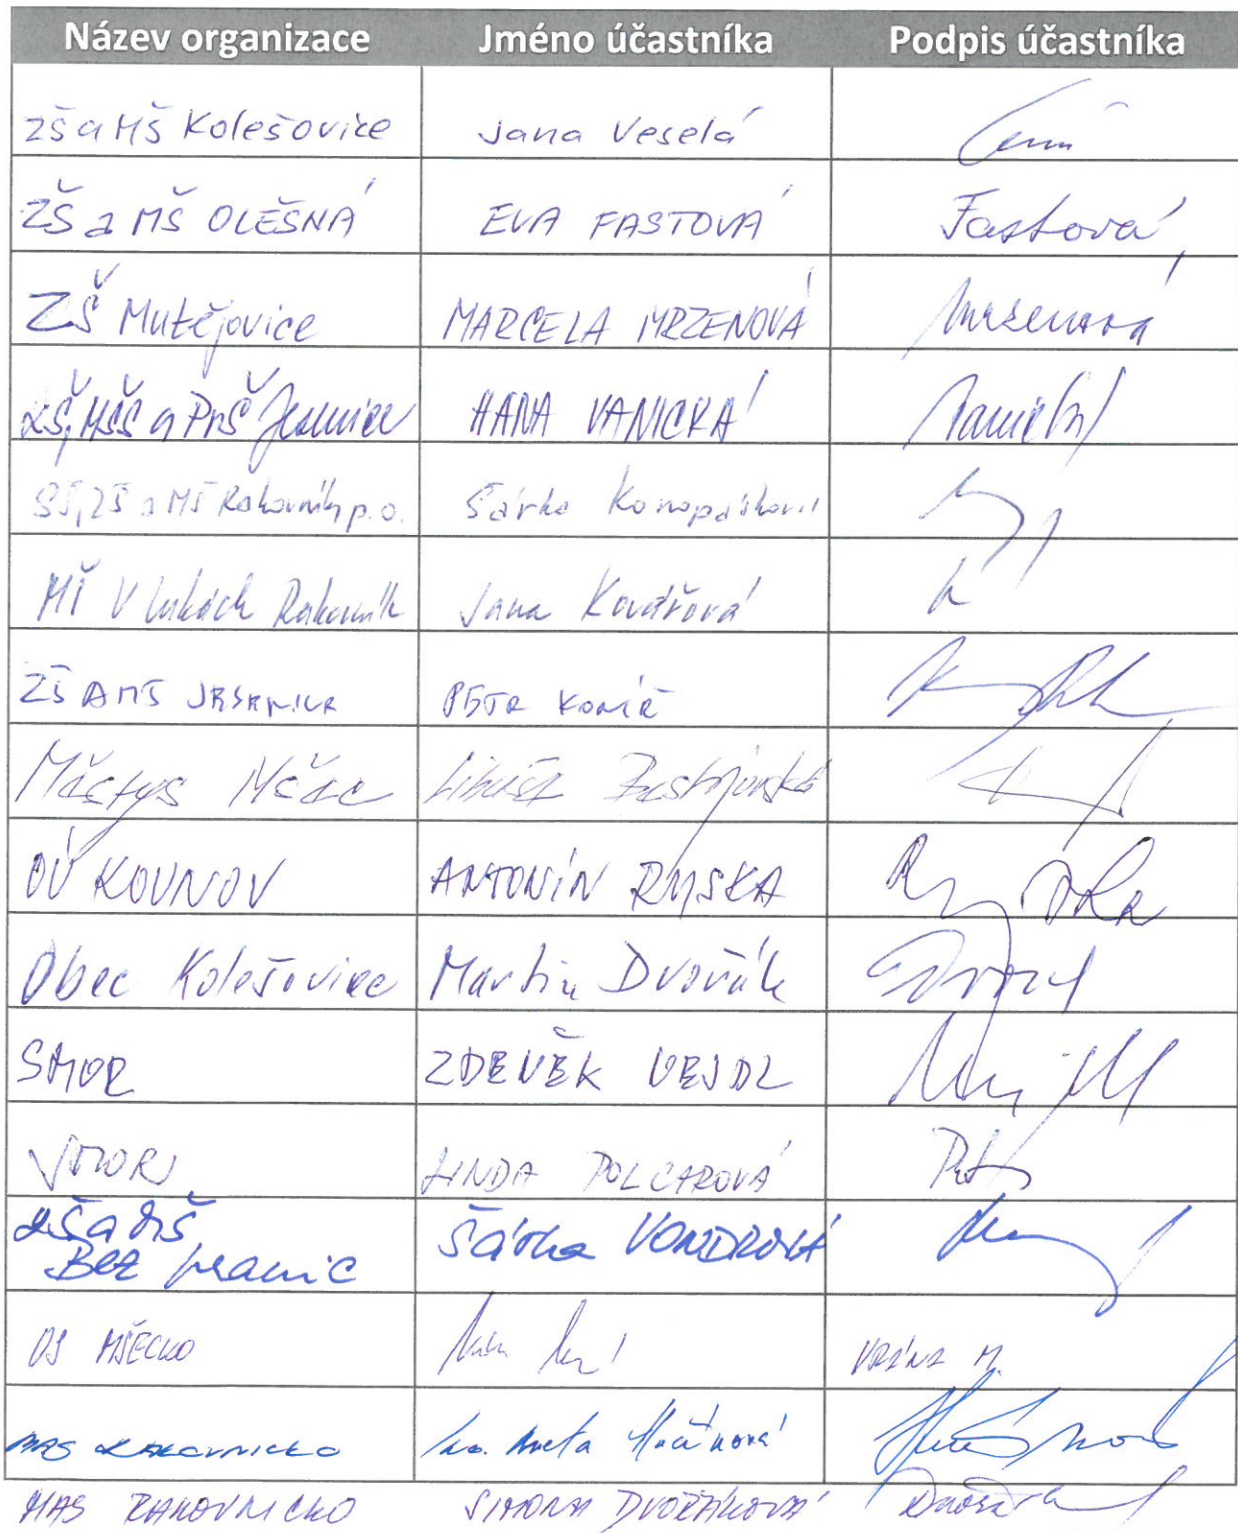 Název organizace Jméno účastníka Podpis účastníka
ZŠ a MŠ Kolešovice Jana Veselá
ZŠ a MŠ OLEŠNÁ EVA FASTOVÁ Fastová
ZŠ Mutějovice MARCELA MRZENOVÁ Mrzenová
ZŠ, MŠ a PrŠ Jesenice HANA VANICKÁ
SŠ, ZŠ a MŠ Rakovník p.o. Šárka Konopásková
MŠ V Lukách Rakovník Jana Kovářová
ZŠ A MŠ JESENICE PETR
Městys Mšec Libuše
OÚ KOUNOV ANTONÍN RYSKA
Obec Kolešovice Martin Dvořák
SMOR ZDENĚK VEJDL
LINDA POLCAROVÁ
ZŠ a MŠ Šárka VONDROVÁ
Bez hranic
MŠECKO VRÁNA M.
MAS RAKOVNICKO Aneta
MAS RAKOVNICKO SIMONA DVOŘÁKOVÁ